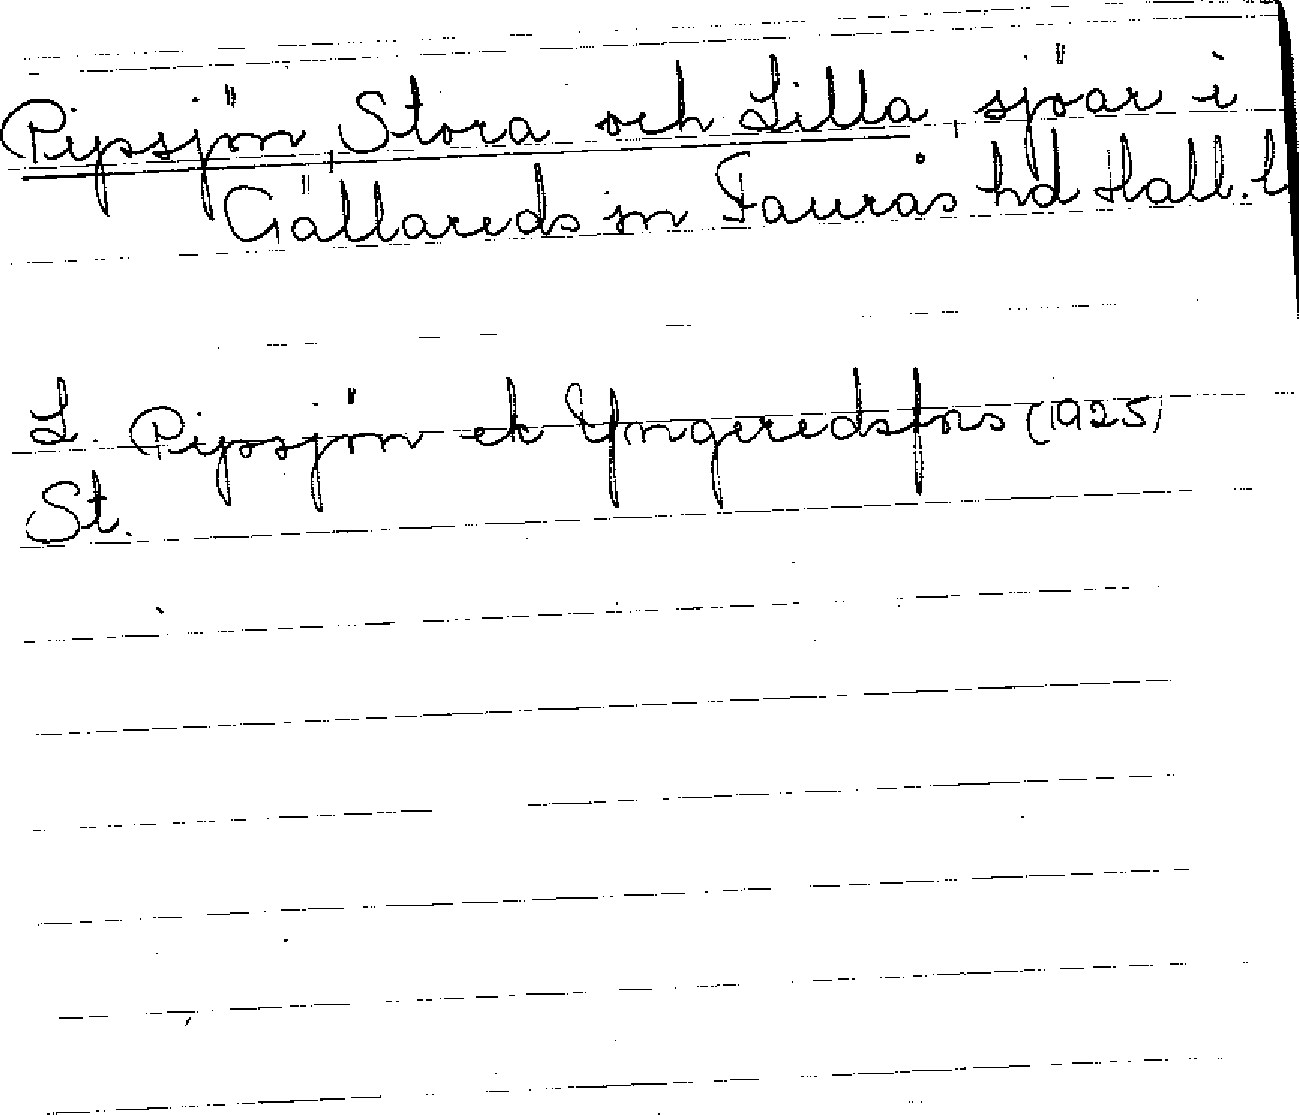 Pipsjön, Stora och Lilla, sjöar i
Gällareds sn Faurås hd Hall. l
L. Pipsjön ek Yngeredsfors (1925)
St.